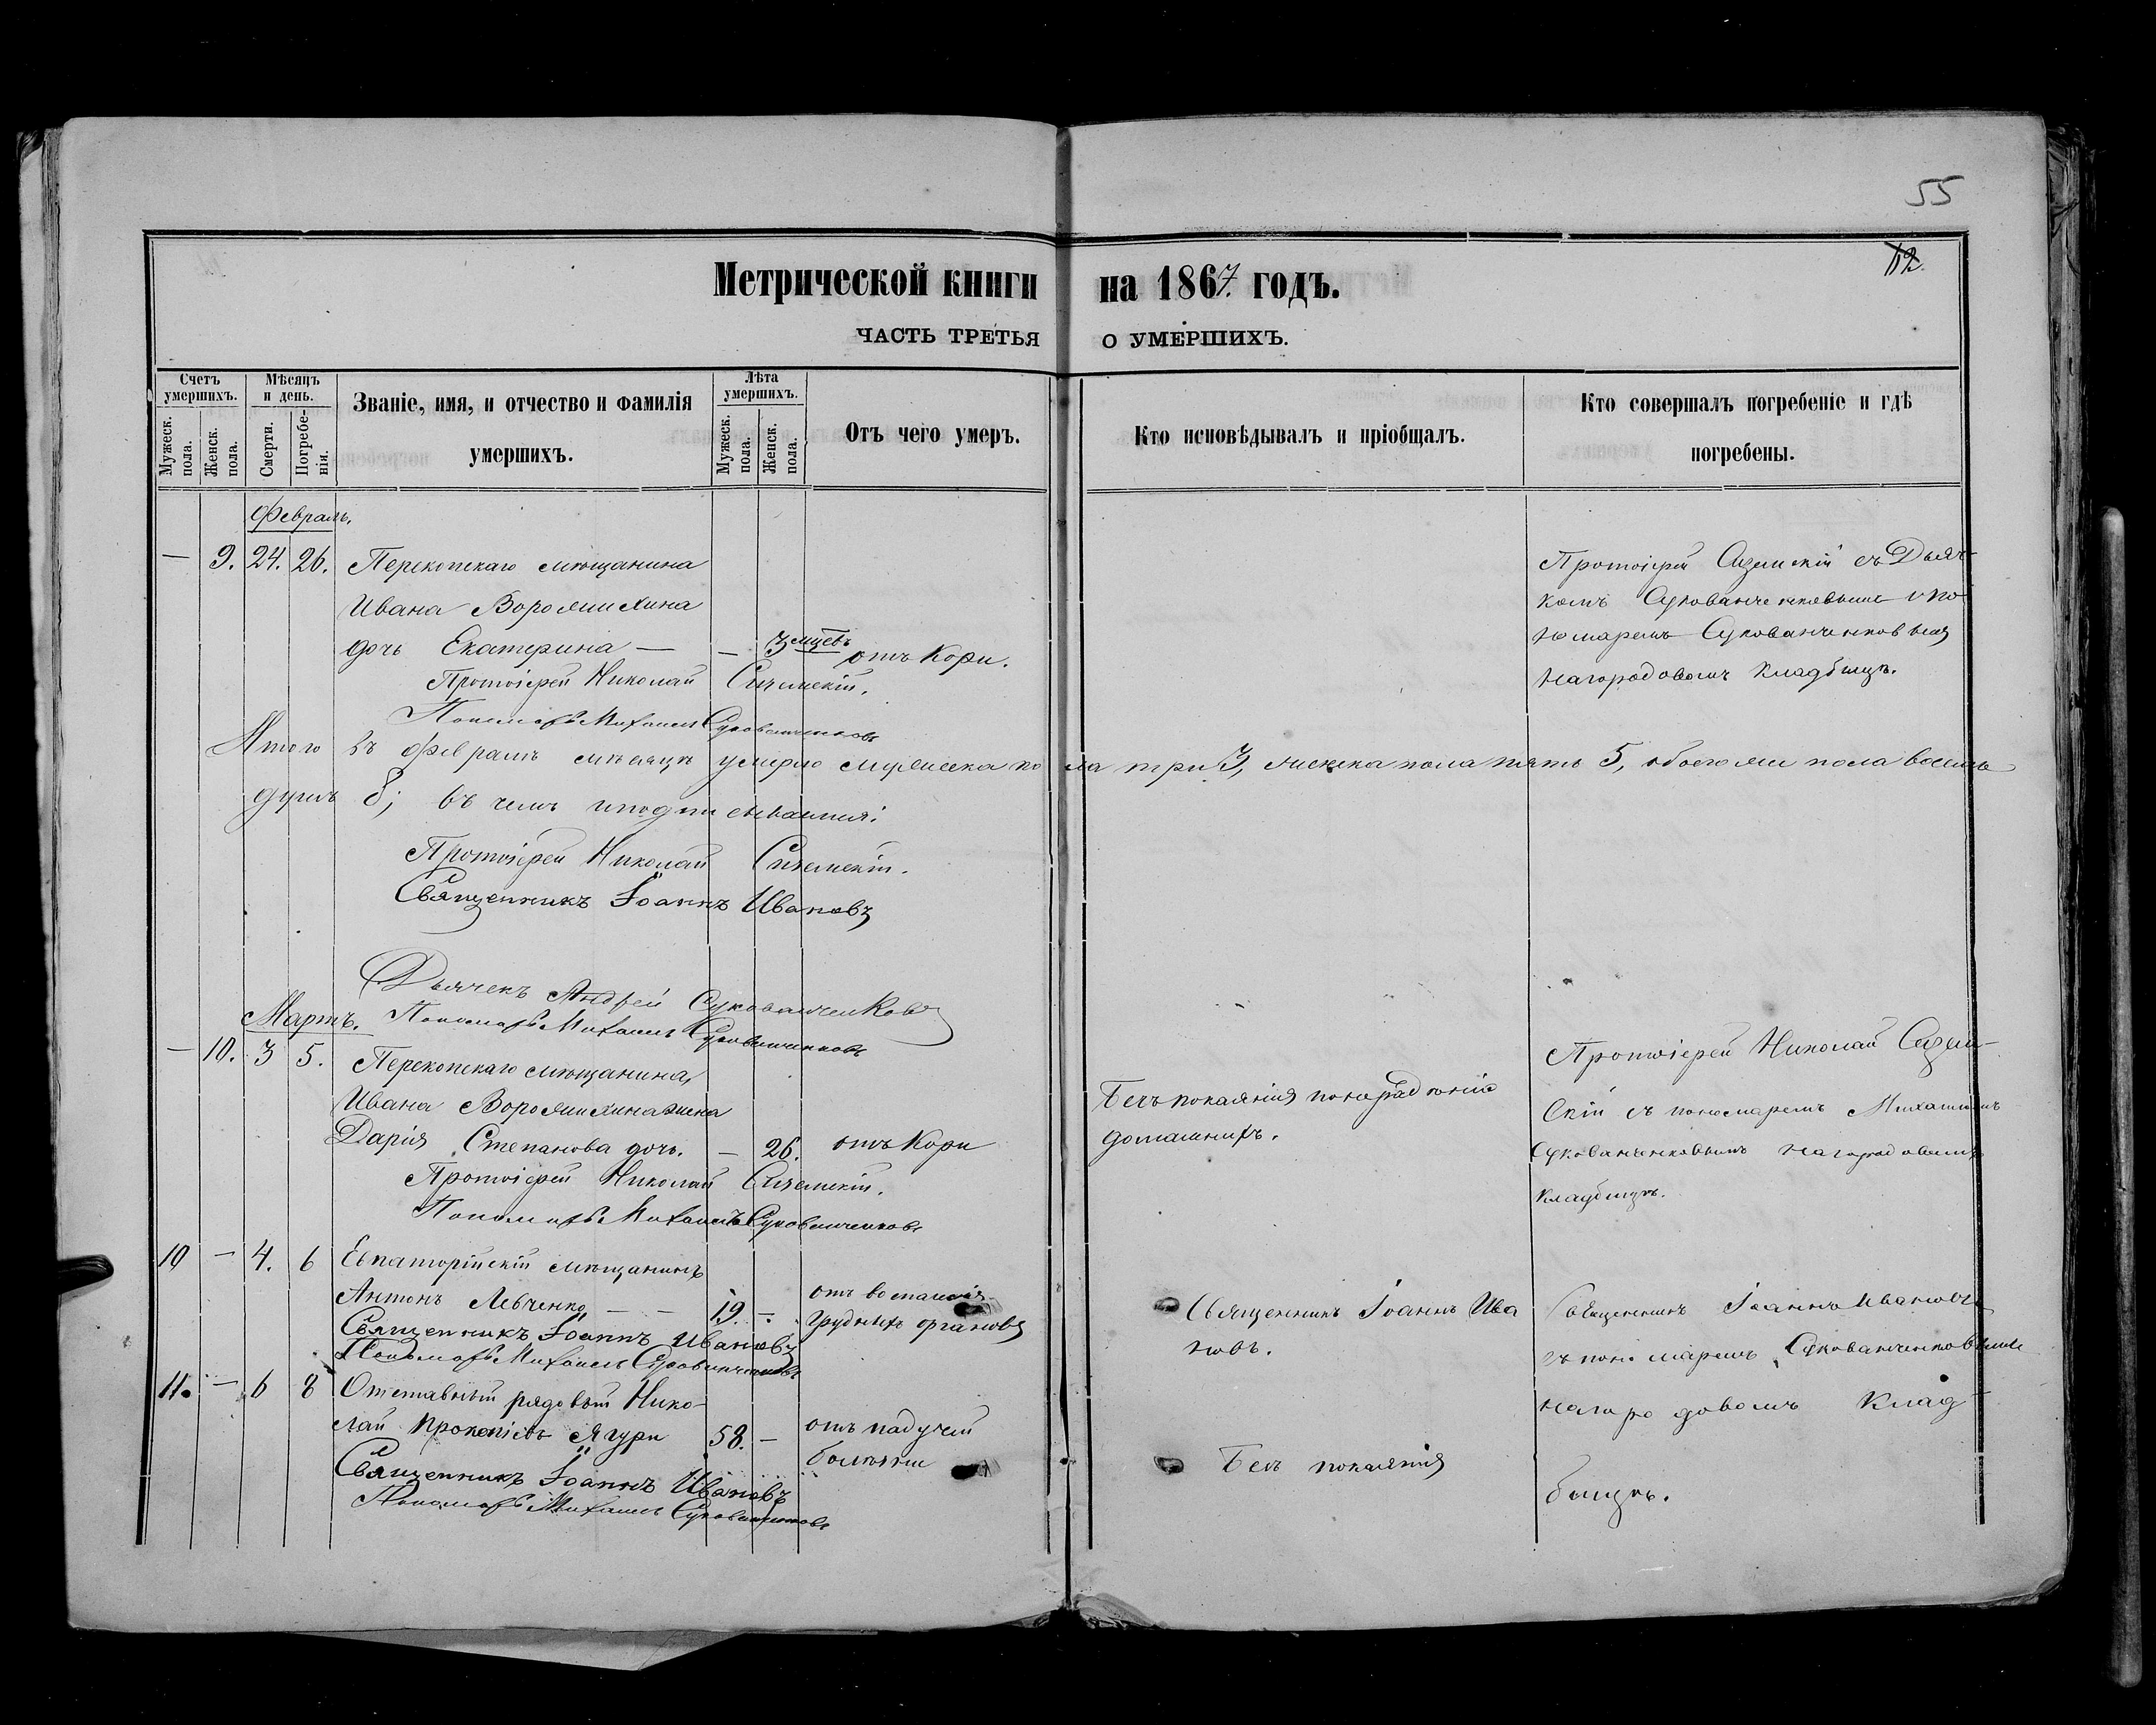 55
12.
Метрической книги на 1867. годъ.
ЧАСТЬ ТРЕТЬЯ О УМЕРШИХЪ.
Счетъ умершихъ.
Мужеск. пола.
Женск. пола.
Мѣсяцъ и день.
Смерти.
Погребенія.
Званіе, имя, и отчество и фамилія
умершихъ.
Лѣта умершихъ.
Мужеск. пола.
Женск. пола.
Отъ чего умеръ.
Кто исповѣдывалъ и пріобщалъ.
Кто совершалъ погребеніе и гдѣ
погребены.
Февраль.
— 9. 24. 26. Перекопскаго мѣщанина
Ивана
дочь Екатерина — — 3 мцевъ отъ Кори.
Протоіерей Николай
Пономарь Михаилъ Сукованченковъ
Протоіерей съ Дьяч-
комъ Сукованченковымъ и по-
номаремъ Сукованченковымъ
на городовомъ Кладбищѣ.
Итого въ Февралѣ мѣсяцѣ умерло мужеска пола три 3, женска пола пять 5, обоего
душъ 8; въ чемъ и подписываемся:
Протоіерей Николай
Священникъ Іоаннъ Ивановъ
Дьячекъ Андрей Сукованченковъ
Пономарь Михаилъ Сукованченковъ
Мартъ.
— 10. 3 5. Перекопскаго мѣщанина,
Ивана жена
Дарія Степанова дочь. — 26. отъ Кори
Протоіерей Николай
Пономарь Михаилъ Сукованченковъ
Безъ покаянія по нерадѣнію
домашнихъ.
Протоіерей Николай
скій съ пономаремъ Михаиломъ
Сукованченковымъ на городовомъ
кладбищѣ.
10 — 4. 6 Евпаторійскій мѣщанинъ
Антонъ Левченко — — 19. — отъ
грудныхъ органовъ
Священникъ Іоаннъ Ивановъ
Пономарь Михаилъ Сукованченковъ
Священникъ Іоаннъ Ива
новъ.
Священникъ Іоаннъ Ивановъ
съ пономаремъ Сукованченковымъ
на городовомъ Клад-
бищѣ.
11. — 6 8 Отставный рядовый Нико-
лай Прокопіевъ 58. — отъ падучей
болѣзни
Священникъ Іоаннъ Ивановъ
Пономарь Михаилъ Сукованченковъ
Безъ покаянія